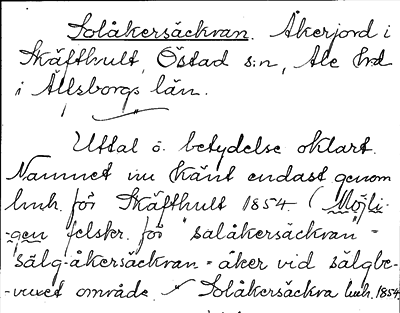 Solåkersäckran. Åkerjord i
Skäfthult, Östad s:n, Ale hd
i Älfsborgs län.
Uttal o. betydelse oklart.
Namnet nu känt endast genom
lmh. för Skäfthult 1854 (Möjli-
gen felskr. för "salåkersäckran =
sälg-åkersäckran = åker vid sälgbe-
-vuxet område. Solåkersäckra lmh. 1854